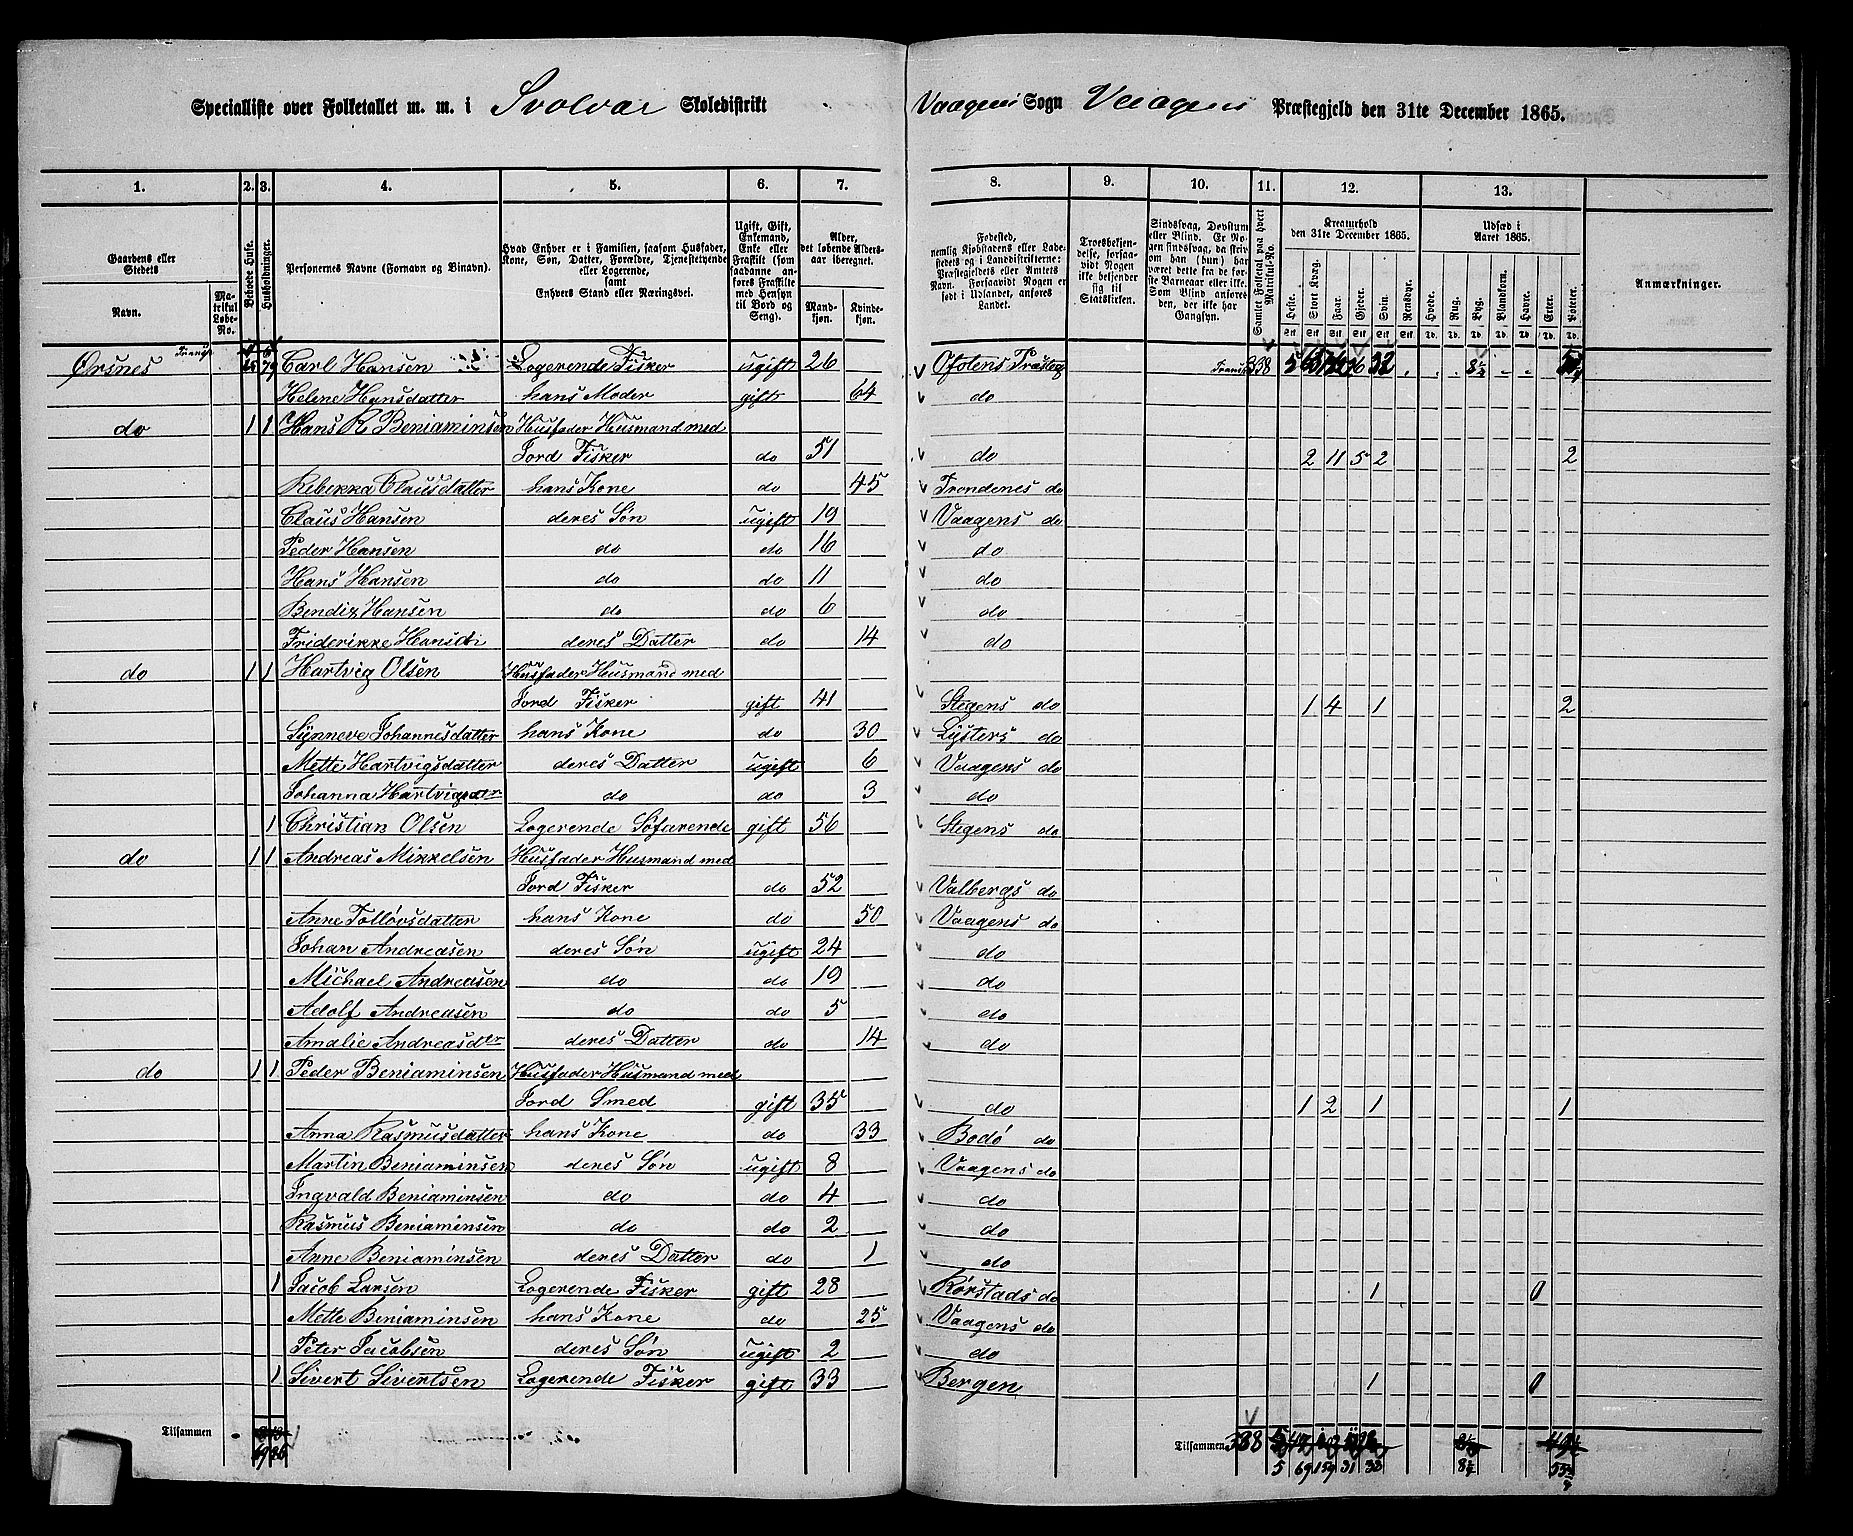 Specialliste over Folketallet m. m. i Svolvær Skoledistrikt Vaagens Sogn Vaagens Præstegjeld den 31te December 1865.
1. 2. 3. 4. 5. 6. 7. 8. 9. 10. 11. 12. 13.
Gaardens eller Stedets Navn. Matrikul Løbe-No. Beboede Huse. Husholdninger. Personernes Navne (Fornavn og Binavn). Hvad Enhver er i Familien, saasom Husfader, Kone, Søn, Datter, Forældre, Tjenestetyende eller Logerende, samt Enhvers Stand eller Næringsvei. Ugift, Gift, Enkemand, Enke eller Fraskilt (som saadanne anføres Fraskilte med Hensyn til Bord og Seng). Alder, det løbende Aldersaar iberegnet. Mandkjøn. Kvindekjøn.
Fødested, nemlig Kjøbstadens eller Ladestedets og i Landdistrikterne: Præstegjeldets eller Amtets Navn. Forsaavidt Nogen er født i Udlandet, anføres Landet. Troesbekjendelse, forsaavidt Nogen ikke bekjender sig til Statskirken. Sindssvag, Døvstum eller Blind. Er Nogen sindssvag, da skrives om han (hun) har været dette fra de første Barneaar eller ikke. Som Blind anføres den, der ikke har Gangsyn. Samlet Folketal paa hvert Matrikul-No. Kreaturhold den 31te December 1865. Heste. Stort Kvæg. Faar. Gjeder. Svin. Rensdyr. Udsæd i Aaret 1865. Hvede. Rug. Byg. Blandkorn. Havre. Erter. Poteter. Anmærkninger.
Ørsnes Transp. Carl Hansen Logerende Fisker ugift 26 Ofotens Præsteg 5 32 8½
Helene Hansdatter hans Moder gift 64 do
do 1 1 Hans R Beniaminsen Husfader Husmand med
Jord Fisker do 51 do 2 11 5 2 2
Rebekka Clausdatter hans Kone do 45 Trondenes do
Claus Hansen deres Søn ugift 19 Vaagens do
Peder Hansen do do 16 do
Hans Hansen do do 11 do
Bendix Hansen do do 6 do
Friderikke Hansdtr deres Datter do 14 do
do 1 1 Hartvig Olsen Husfader Husmand med
Jord Fisker gift 41 Stegens do 1 4 1 2
Synneve Johannesdatter hans Kone do 30 Lysters do
Mette Hartvigsdatter deres Datter ugift 6 Vaagens do
Johanna Hartvigsdtr do do 3 do
1 Christian Olsen Logerende Søfarende gift 56 Stegens do
do 1 1 Andreas Mikkelsen Husfader Husmand med
Jord Fisker do 52 Valbergs do
Anne Tolløvsdatter hans Kone do 50 Vaagens do
Johan Andreasen deres Søn ugift 24 do
Michael Andreasen do do 19 do
Adolf Andreasen do do 5 do
Amalie Andreasdtr deres Datter do 14 do
do 1 1 Peder Beniaminsen Husfader Husmand med
Jord Smed gift 35 do 1 2 1 1
Anna Rasmusdatter hans Kone do 33 Bodø do
Martin Beniaminsen deres Søn ugift 8 Vaagens do
Ingvald Beniaminsen do do 4 do
Rasmus Beniaminsen do do 2 do
Anne Beniaminsen deres Datter do 1 do
1 Jacob Larsen Logerende Fisker gift 28 Rørstads do 1 0
Mette Beniaminsen hans Kone do 25 Vaagens do
Peter Jacobsen deres Søn ugift 2 do
1 Sivert Sivertsen Logerende Fisker gift 33 Bergen 1 0
Tilsammen Tilsammen 388
69 86 5 69 159 31 33